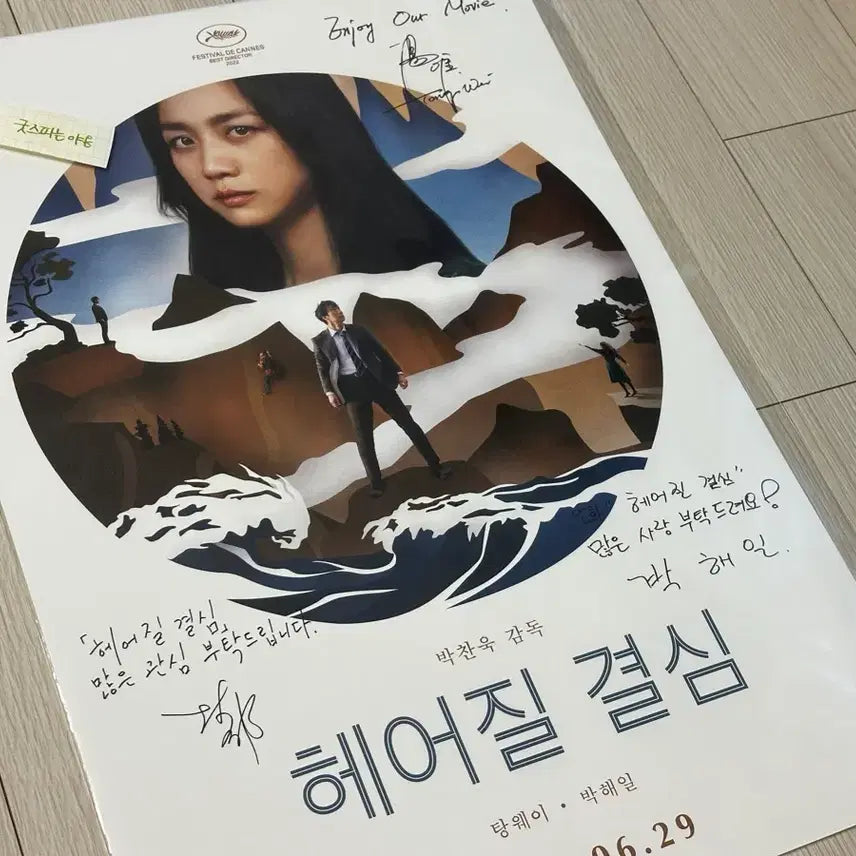 FESTIVAL DE CANNES
BEST DIRECTOR
2022
Enjoy Our Movie.
굿스파는야옹
"헤어질 결심"
많은 사랑 부탁드려요!
박해일.
「헤어질 결심」
많은 관심 부탁드립니다.
박찬욱 감독
헤어질 결심
탕웨이 • 박해일
06.29